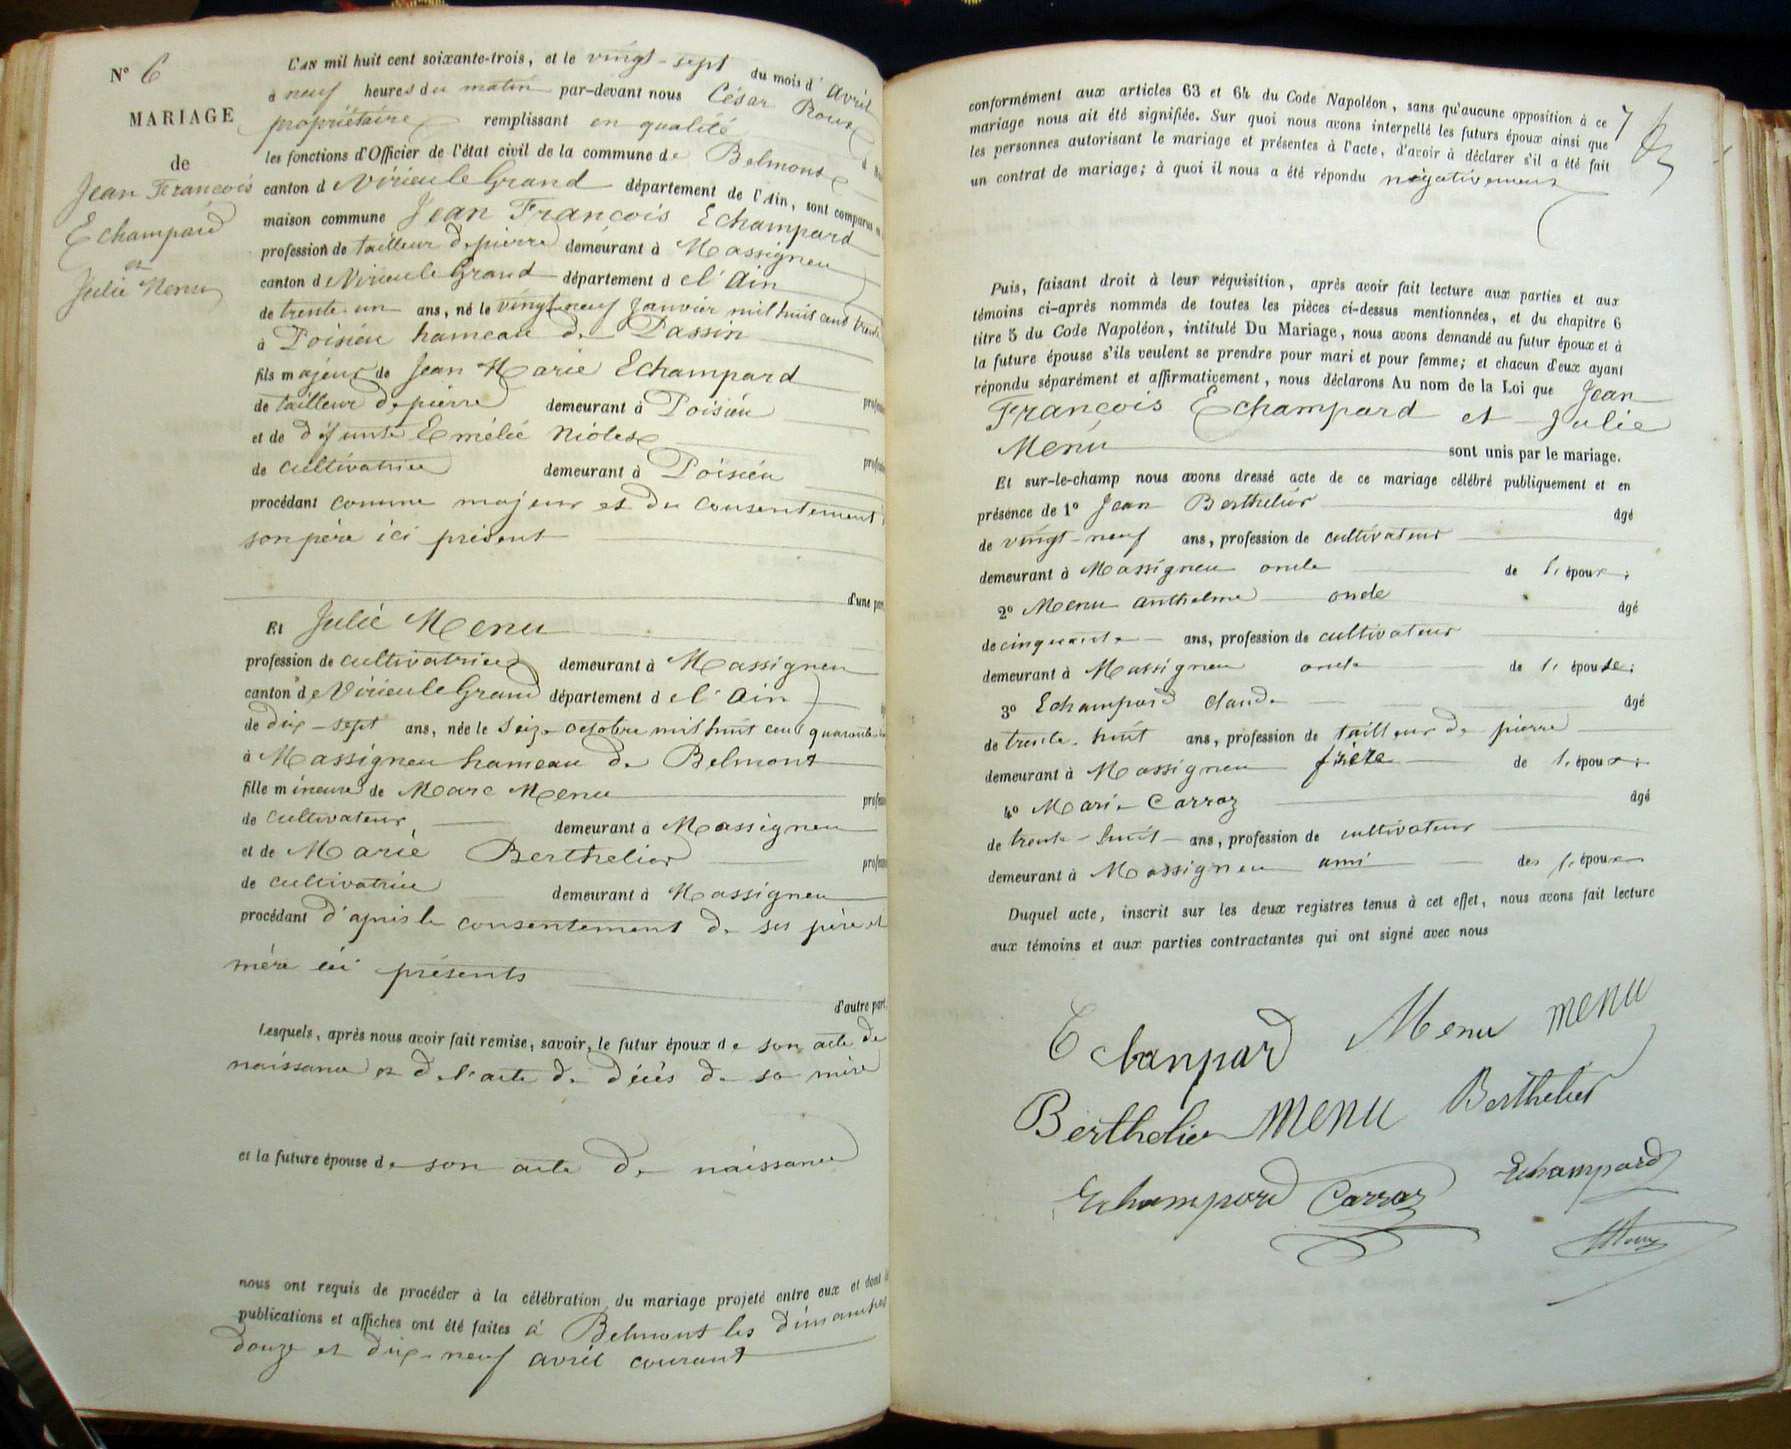 N° 6
MARIAGE
de
Jean François
Echampard
et
Julie Menu
L'AN mil huit cent soixante-trois, et le vingt-sept du mois d'avril
à neuf heures du matin par-devant nous César Roux
propriétaire remplissant en qualité
les fonctions d'Officier de l'état civil de la commune de Belmont
canton de Virieu le Grand département de l'Ain, sont comparus en
maison commune Jean François Echampard
profession de tailleur de pierre demeurant à Massigneu
canton de Virieu le Grand département de l'Ain
de trente un ans, né le vingt neuf Janvier mil huit cent trente
à Poisieu hameau de Passin
fils majeur de Jean Marie Echampard
de tailleur de pierre demeurant à Poisieu
et de défunte Emélie
de cultivatrice demeurant à Poisieu
procédant comme majeur et du consentement
son père ici présent
d'une part
Et Julie Menu
profession de cultivatrice demeurant à Massigneu
canton de Virieu le Grand département de l'Ain
de dix-sept ans, née le seize octobre mil huit cent quarante
à Massigneu hameau de Belmont
fille mineure de Marc Menu
de cultivateur demeurant à Massigneu
et de Marie Berthelier
de cultivatrice demeurant à Massigneu
procédant d'après le consentement de ses père et
mère ici présents
d'autre part.
Lesquels, après nous avoir fait remise, savoir, le futur époux de son acte de
naissance et de l'acte de décès de sa mère
et la future épouse de son acte de naissance
nous ont requis de procéder à la célébration du mariage projeté entre eux et dont les
publications et affiches ont été faites à Belmont les dimanches
douze et dix-neuf avril courant
7
conformément aux articles 63 et 64 du Code Napoléon, sans qu'aucune opposition à ce
mariage nous ait été signifiée. Sur quoi nous avons interpellé les futurs époux ainsi que
les personnes autorisant le mariage et présentes à l'acte, d'avoir à déclarer s'il a été fait
un contrat de mariage; à quoi il nous a été répondu négativement
Puis, faisant droit à leur réquisition, après avoir fait lecture aux parties et aux
témoins ci-après nommés de toutes les pièces ci-dessus mentionnées, et du chapitre 6
titre 5 du Code Napoléon, intitulé Du Mariage, nous avons demandé au futur époux et à
la future épouse s'ils veulent se prendre pour mari et pour femme; et chacun d'eux ayant
répondu séparément et affirmativement, nous déclarons Au nom de la Loi que Jean
François Echampard et Julie
Menu sont unis par le mariage.
Et sur-le-champ nous avons dressé acte de ce mariage célébré publiquement et en
présence de 1° Jean Berthelier âgé
de vingt-neuf ans, profession de cultivateur
demeurant à Massigneu oncle de l'époux;
2° Menu Anthelme oncle âgé
de cinquante ans, profession de cultivateur
demeurant à Massigneu oncle de l'épouse;
3° Echampard Claude âgé
de trente-huit ans, profession de tailleur de pierre
demeurant à Massigneu frère de l'époux;
4° Marie Carraz âgé
de trente-huit ans, profession de cultivateur
demeurant à Massigneu ami des l'époux
Duquel acte, inscrit sur les deux registres tenus à cet effet, nous avons fait lecture
aux témoins et aux parties contractantes qui ont signé avec nous
Echanpard Menu menu
Berthelier menu Berthelier
Echampard Carraz Echampard
Roux